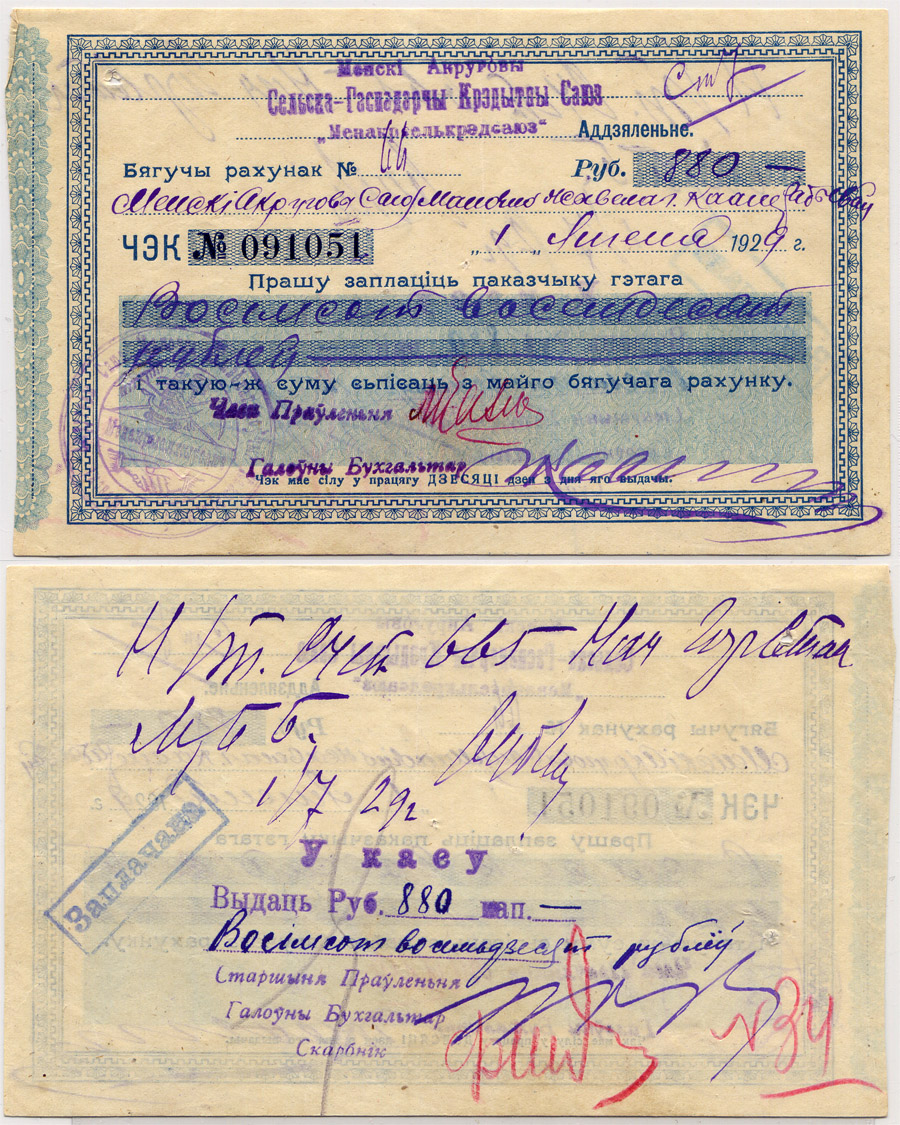 Менскі Акруговы
Сельска-Гаспадарчы Крэдытавы Саюз
„Менакрселькрэдсаюз“ Аддзяленьне.
Бягучы рахунак № 66 Руб. 880 —
Менскі Акруговы
ЧЭК № 091051 „ 1 „ Ліпеня 1929 г.
Прашу заплаціць паказчыку гэтага
Восімсот восімдзесят
рублей
і такую-ж суму сьпісаць з майго бягучага рахунку.
Член Праўленьня
Галоўны Бухгальтар
Чэк мае сілу у працягу ДЗЕСЯЦІ дзён з дня яго выдачы.
1/7 29 г
У касу
Выдаць Руб. 880 кап. —
Восімсот восьмьдзесят рублёў
Заплачана
Старшыня Праўленьня
Галоўны Бухгальтар
Скарбнік
№34